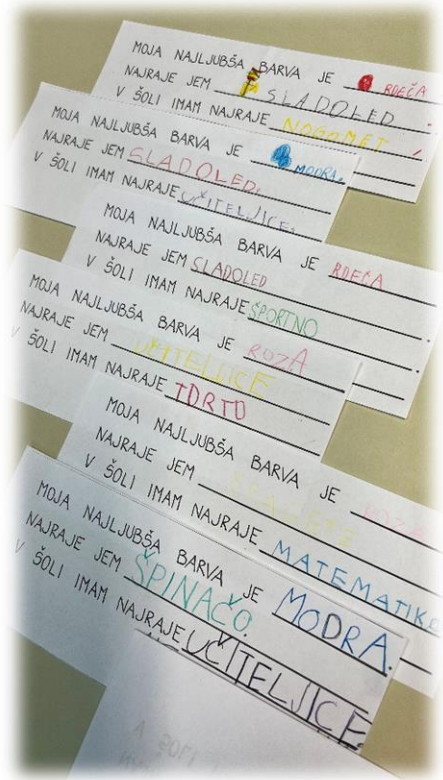 MOJA NAJLJUBŠA BARVA JE RDEČA
NAJRAJE JEM SLADOLED
V ŠOLI IMAM NAJRAJE NOGOMET.
MOJA NAJLJUBŠA BARVA JE MODRA.
NAJRAJE JEM SLADOLED.
V ŠOLI IMAM NAJRAJE UČITELJICE.
MOJA NAJLJUBŠA BARVA JE RDEČA
NAJRAJE JEM SLADOLED
V ŠOLI IMAM NAJRAJE ŠPORTNO
MOJA NAJLJUBŠA BARVA JE ROZA
NAJRAJE JEM UČITELJICE
V ŠOLI IMAM NAJRAJE TORTO
MOJA NAJLJUBŠA BARVA JE ROZA
NAJRAJE JEM
V ŠOLI IMAM NAJRAJE MATEMATIK
MOJA NAJLJUBŠA BARVA JE MODRA.
NAJRAJE JEM ŠPINAČO.
V ŠOLI IMAM NAJRAJE UČITELJICE